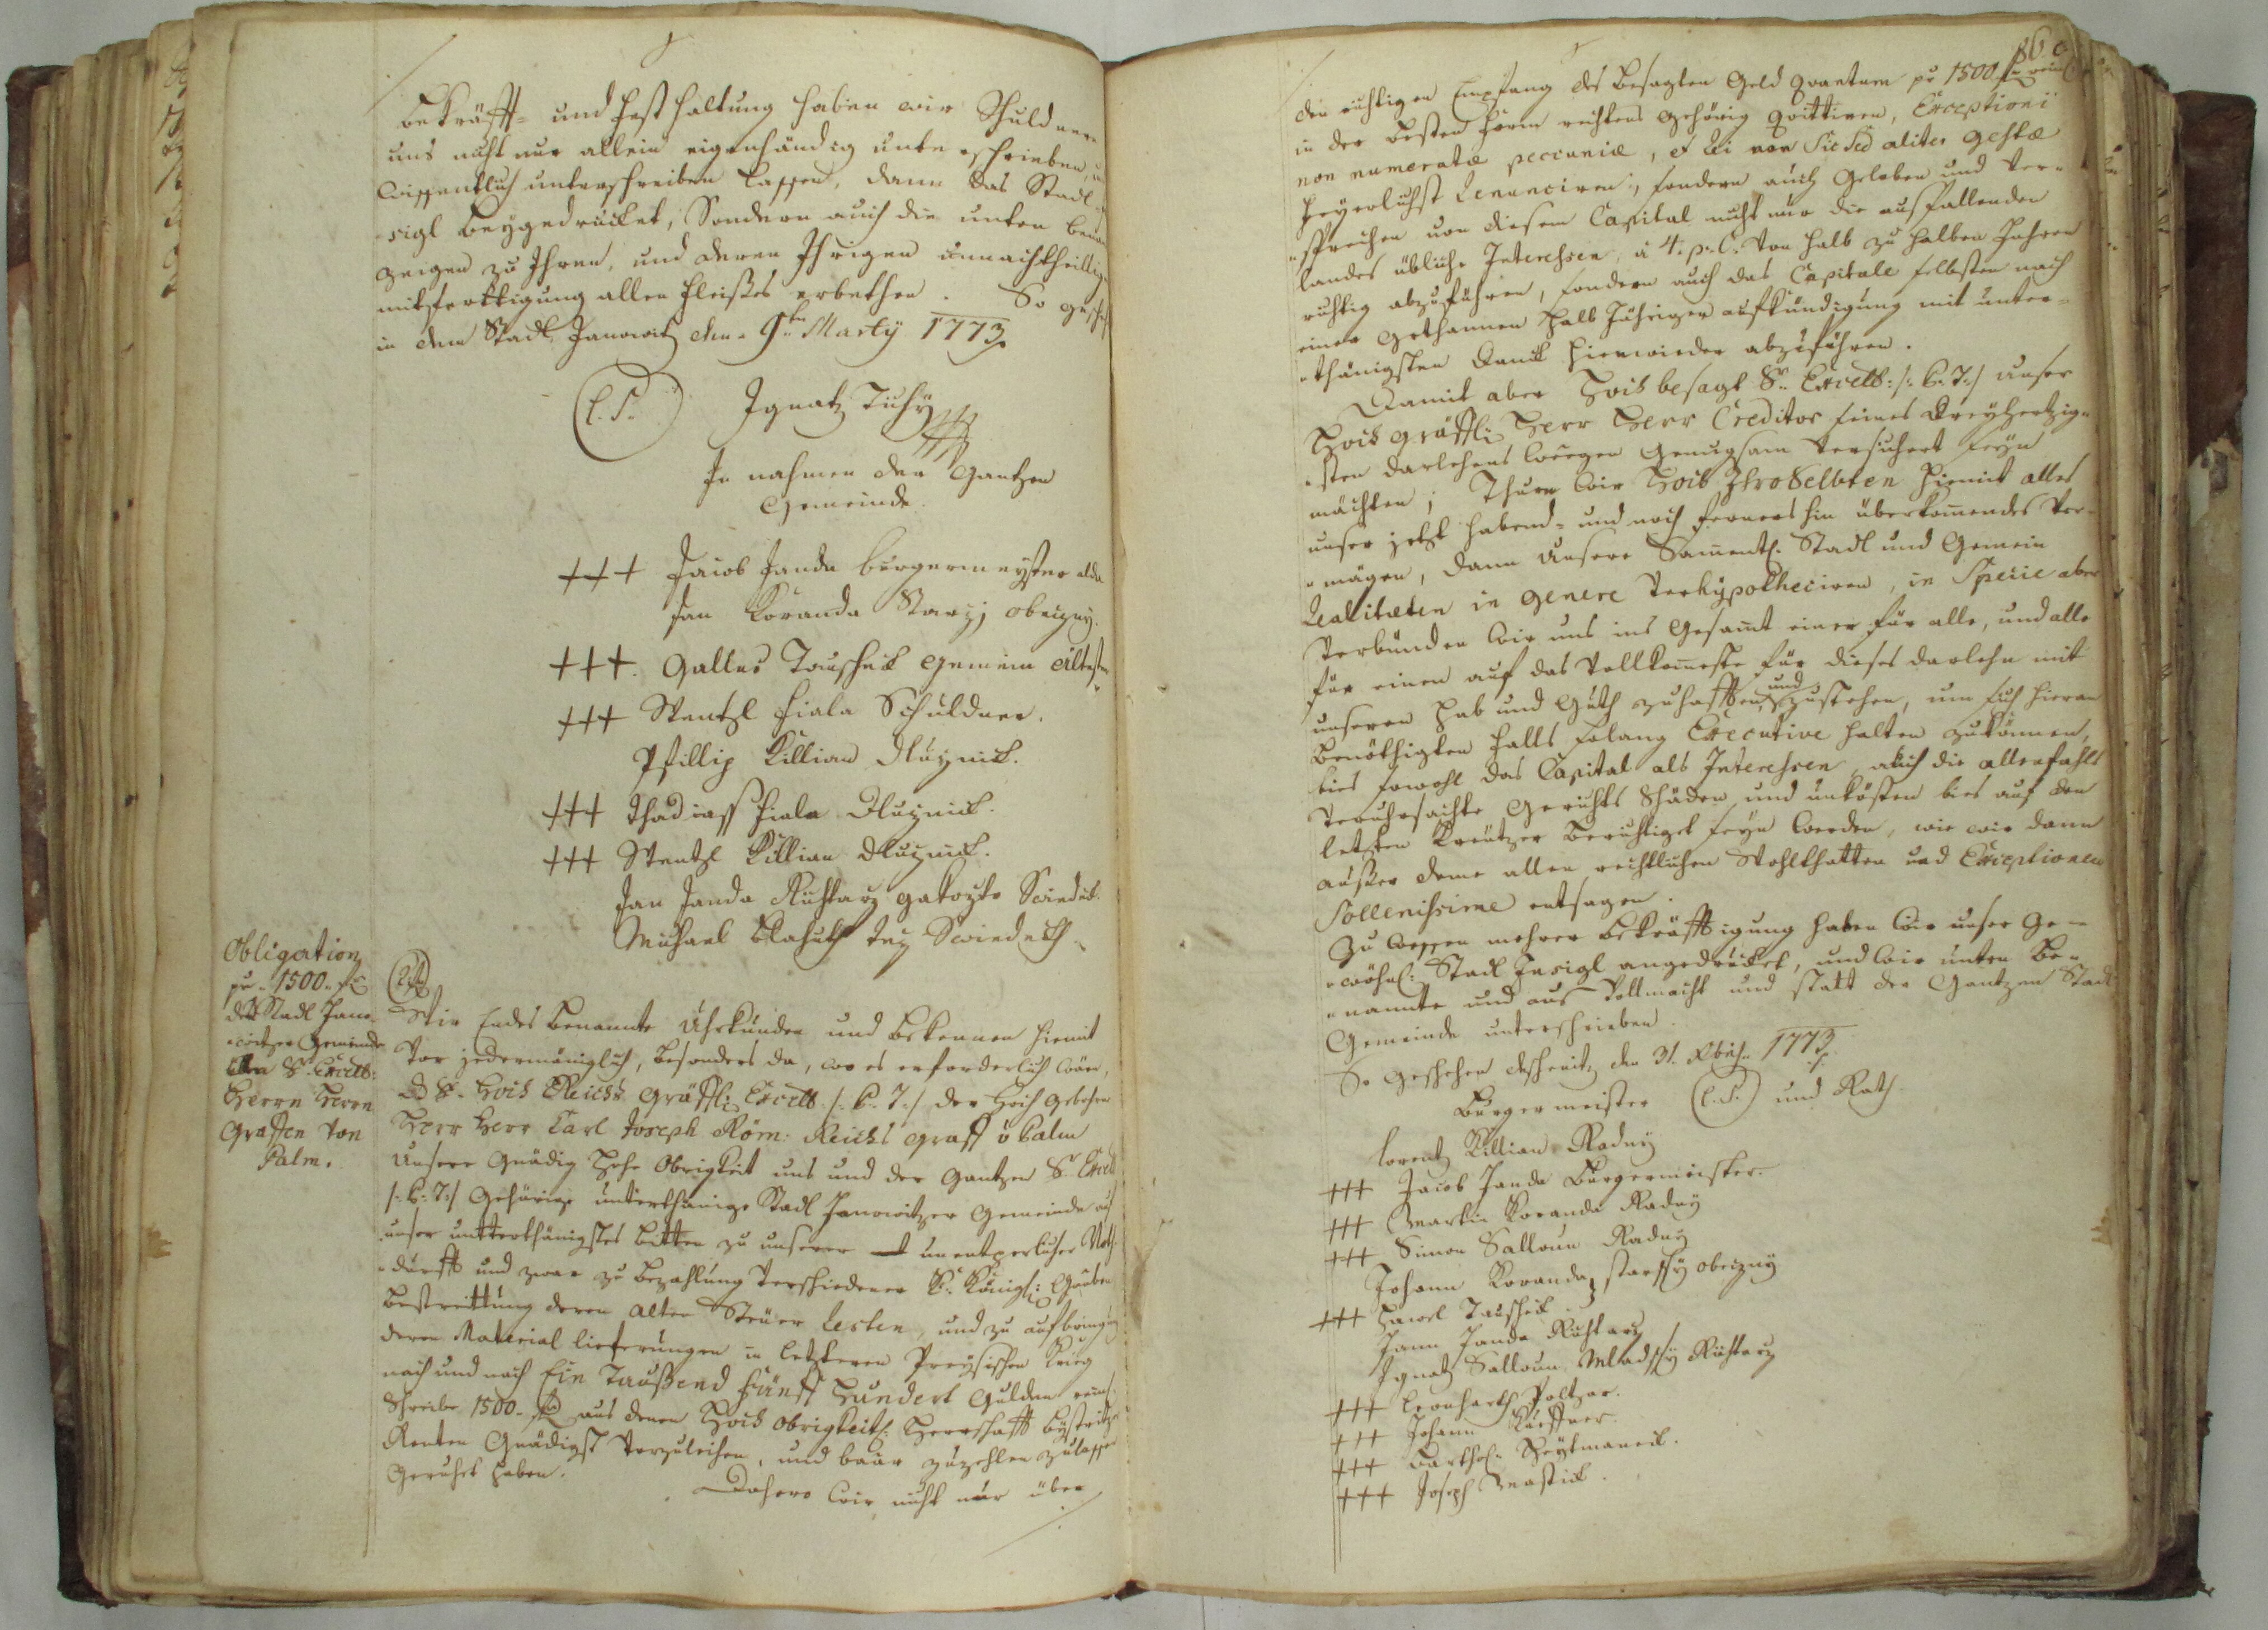 Bekräfft- und Festhaltung haben wir Schuldnere
uns nicht nur allein eigenhändig unterschrieben,
wissentlich unterschreiben lassen, dann das Stadl
sigl beygedrucket, Sondern auch die unten
zeigen zu Ihren, und deren Ihrigen unnachtheillige
mitferttigung allen Fleißes erbethen. So gescheh
in dem Stadl Janowitz den 9ten Martÿ 1773.
(L.S.) Ignatz Tichÿ
In nahmen der Gantzen
Gemeinde.
+++ Jacob Janda burgermeyster alda
Jan Koranda Starzj obeczny.
+++. Galles Tauscheck Gemein Ältester
+++ Wentzl Fiala Schuldner.
Phillip Killian Dluznick.
+++ Thadias Fiala Dluznick.
+++ Wentzl Killian Dluznick.
Jan Janda Richtarz gakozto Swiedek.
Michael Blahuth tez Swiedeck
Obligation
pr. 1500. f
des Stadl Jano-
witzer Gemeinde
an Sr. Excell:
Herrn Herrn
Graffen von
Palm.
Wir Endes Benannte Uhrkunden und Bekennen hiemit
Vor jedermäniglich, besonders da, wo es erforderlich wäre,
daß Sr. Hoch Reichs Gräffli. Excell. /: P: T:/ der Hoch gebohrne
Herr Herr Carl Joseph Röm: Reichs Graff v Palm
Unsere Gnädig Hohe Obrigkeit uns und der Gantzen Sr. Excell
/: P: T:/ Gehörige unterthänige Stadl Janowitzer Gemeinde auf
unser unterthänigstes bitten zu unserer unentperlicher Noth-
durfft und zwar zu Bezahlung Verschiedener K. Königl: Gaaben
Bestreittung deren alten Steüer Resten, und zu aufbringung
deren Material lieferungen in letzteren Preÿsischen Krieg
nach und nach Ein Taußend Fünff Hundert Gulden rein:
Schreibe 1500. f aus denen Hoch Obrigkeitl: Herrschafft Bystritzer
Renten Gnädigst Vorzuleihen, und baar zuzehlen zulassen
Geruhet haben.
Dahero wir nicht nur über
den richtigen Empfang des besagten Geld quantum pr 1500 f rein
in der Besten Form rechtens gehörig quittiren, Exceptionj
non numeratæ pecuniæ, et Rei non Sic Sed aliter gestæ
Feyerlichst Renunciren, sondern auch Geloben und Ver-
sprechen von diesem Capital nicht nur die ausfallenden
landes übliche Interessen, à 4. p. C. Von halb zu halben Jahren
richtig abzuführen, sondern auch das Capitale selbsten nach
einer gethannen Halb Jähriger aufkündigung mit unter-
thänigsten Danck hierwieder abzuführen.
Damit aber Hoch besagt Sr. Excell:/: P: T:/ unser
Hoch gräffli. Herr Herr Creditor seines Treyhertzig-
sten darlehens wegen Genugsam Versichert seyn
möchten; Thuen wir Hoch Ihro Selbten hiemit alles
unser jetzt habend- und noch fernershin überkomendes Ver-
mögen, dann unsere Sämentl. Stadl und Gemein
Realitæten in genere Verhypotheciren, in Specie aber
Verbünden wir uns ins Gesamt einer für alle, und alle
für einen auf das Vollkomeste für dieses darlehn mit
unseren Hab und Guth zuhafften, und zustehen, um sich hieran
Benöthigten Falls solang Executive halten zukönnen,
bies sowohl das Capital als Interessen, auch die allenfahls
Veruhrsachte Gerichts Schäden und unkösten bies auf den
letzten Kreutzer Berichtiget seyn werden, wie wir dann
außer deme allen rechtlichen Wohlthatten und Exceptionen
Sollenissime entsagen.
Zu wessen mehrer Bekräfftigung haben wir unser Ge-
wöhnl: Stadl Insigl angedrucket, und wir unten Be-
nannte und aus Vollmacht und statt der Gantzen Stadl
Gemeinde unterschrieben.
So Geschehen Deschenitz den 31. Xbris. 1773.
Burgermeister (L.S.) und Rath
Lorentz Killian Radny
+++ Jacob Janda Burgermeister.
+++ Martin Koranda Radny
+++ Simon Salloun Radny
Johann Koranda starssÿ obecznÿ
+++ Hawel Tauscheck
Jann Janda Richtarz
Ignatz Salloun, Mladssÿ Richtarz
+++ Leonharth Poltzar.
+++ Johann Kueffner.
+++ Barthol:
+++ Joseph Mastick.